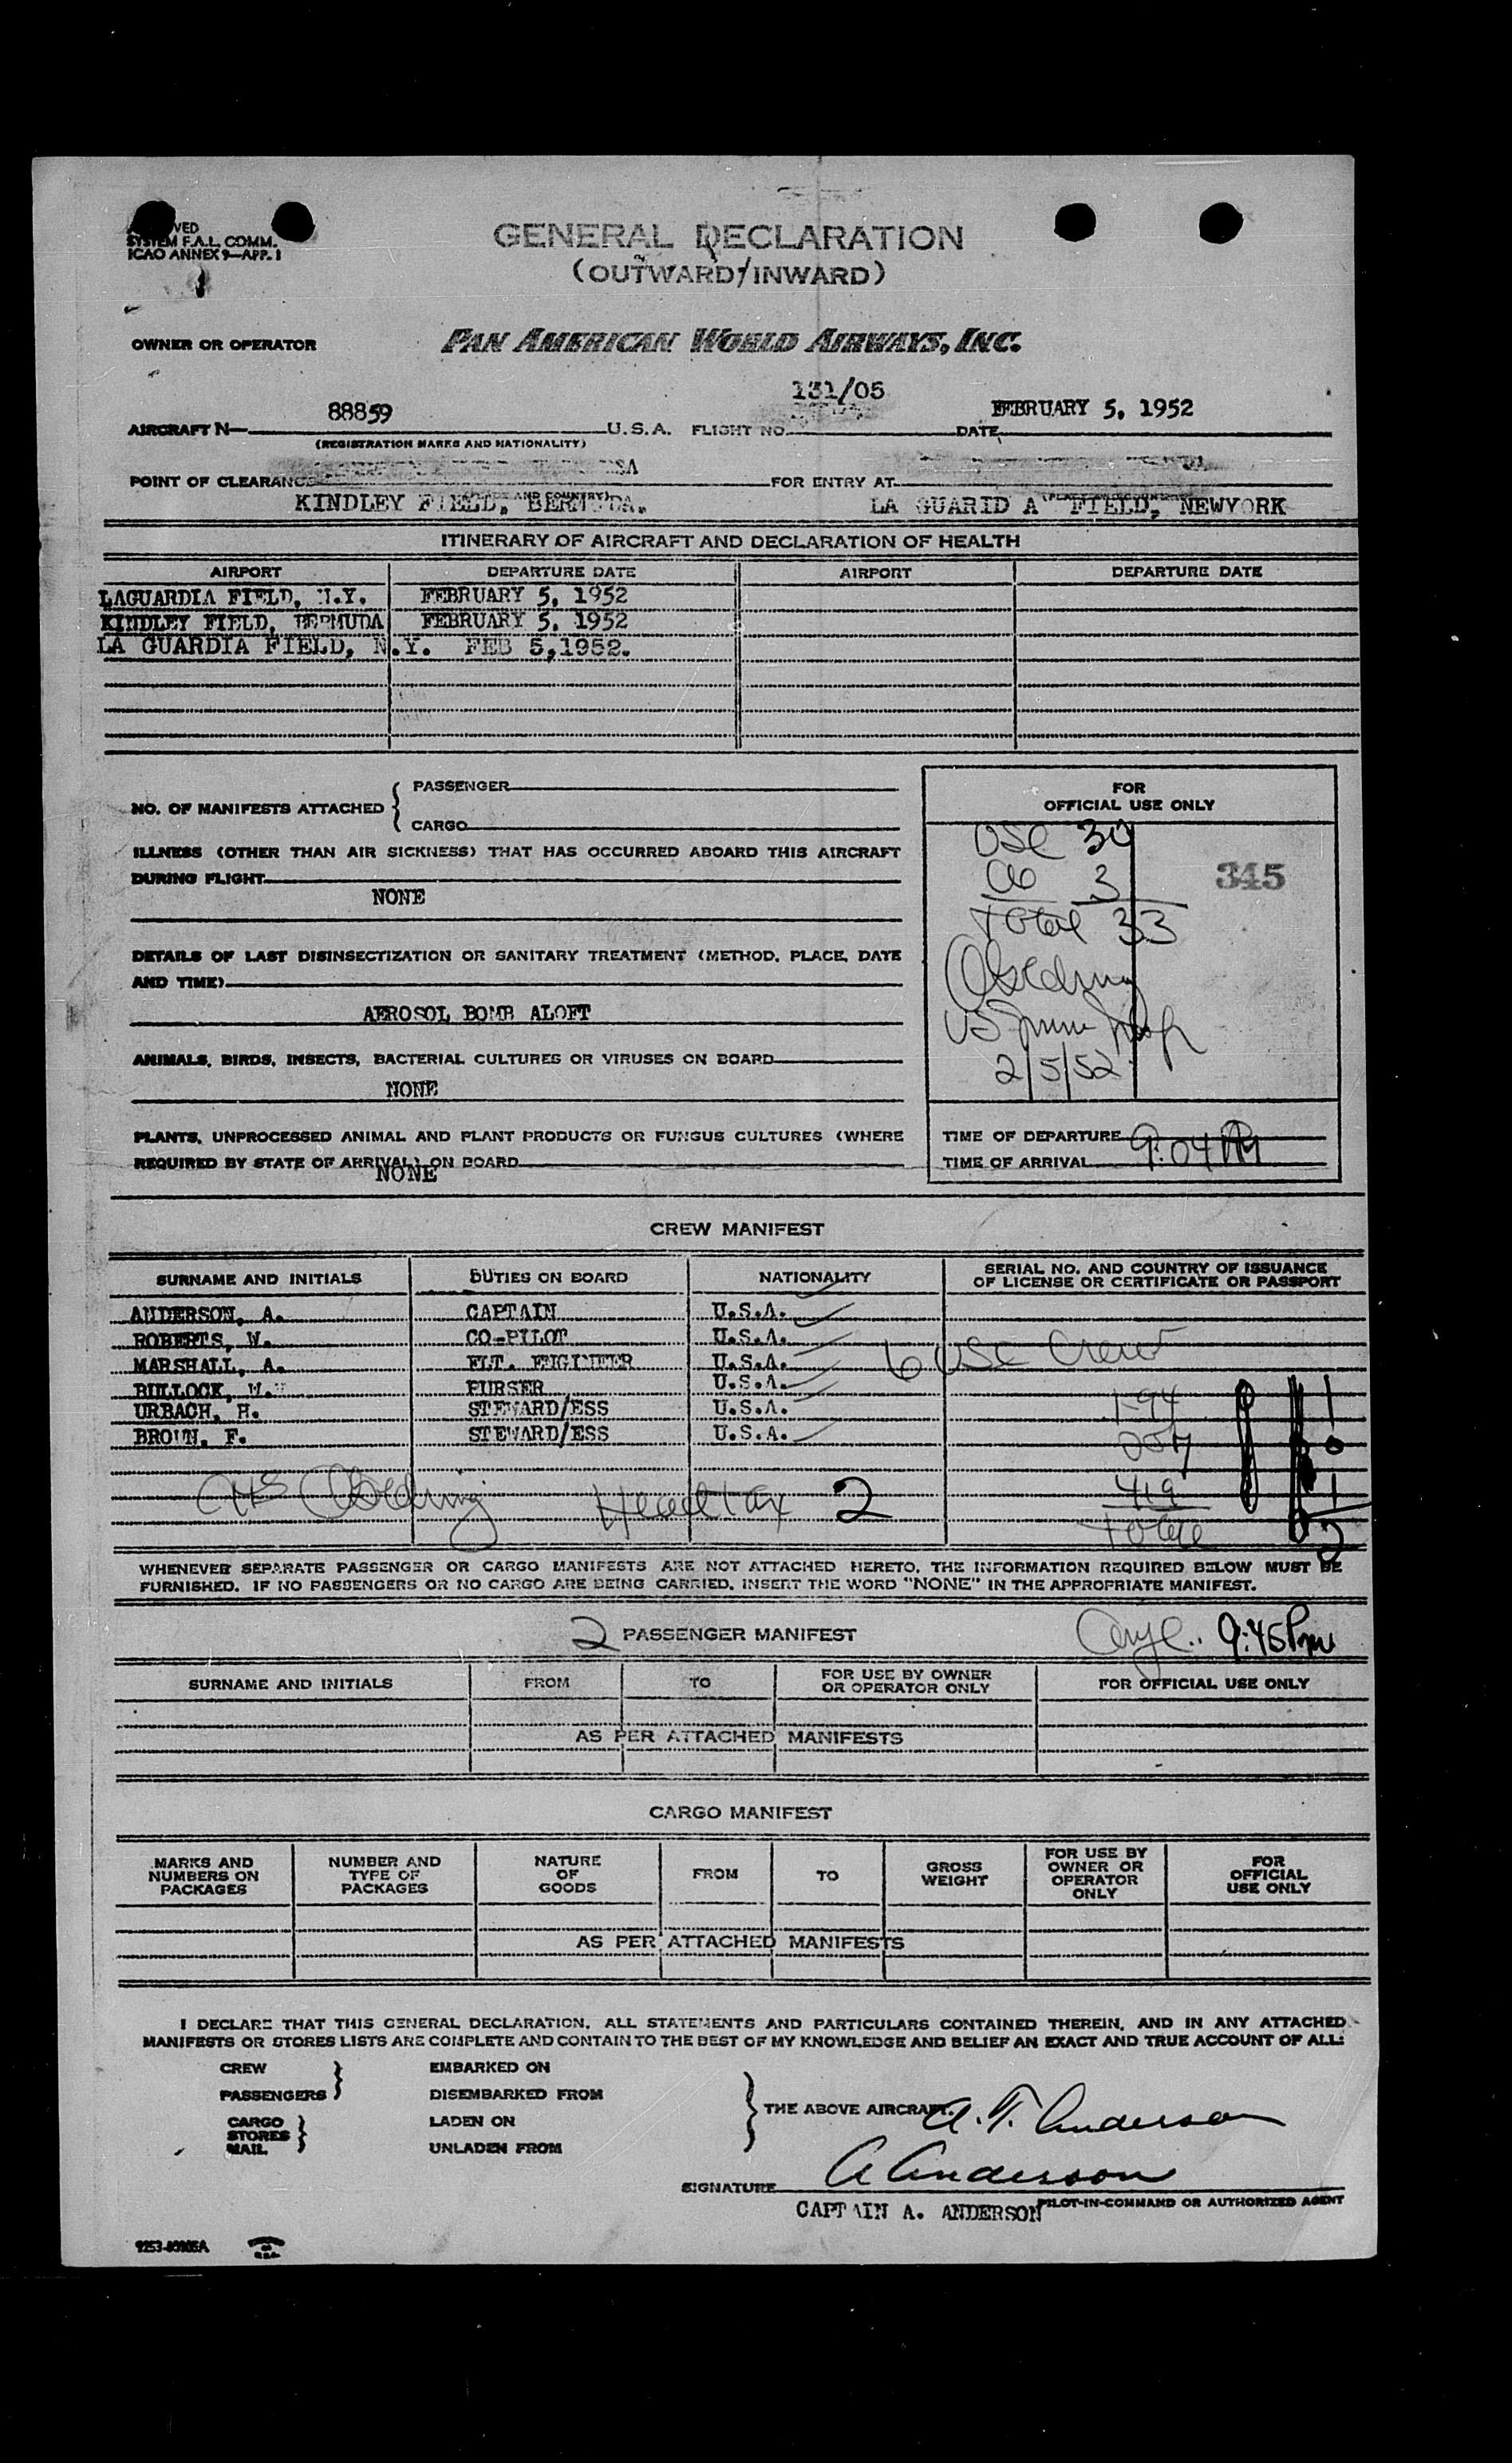 VED
SYSTEM F.A.L. COMM.
ICAO ANNEX 9—APP. 1
GENERAL DECLARATION
(OUTWARD/INWARD)
OWNER OR OPERATOR PAN AMERICAN WORLD AIRWAYS, INC.
131/05
AIRCRAFT N— 88859 U.S.A. FLIGHT NO. DATE FEBRUARY 5, 1952
(REGISTRATION MARKS AND NATIONALITY)
POINT OF CLEARANCE FOR ENTRY AT
KINDLEY FIELD, BERMUDA. LA GUARID A FIELD, NEWYORK
ITINERARY OF AIRCRAFT AND DECLARATION OF HEALTH
AIRPORT DEPARTURE DATE AIRPORT DEPARTURE DATE
LAGUARDIA FIELD, N.Y. FEBRUARY 5, 1952
KINDLEY FIELD, BERMUDA FEBRUARY 5, 1952
LA GUARDIA FIELD, N.Y. FEB 5,1952.
NO. OF MANIFESTS ATTACHED { PASSENGER
CARGO
ILLNESS (OTHER THAN AIR SICKNESS) THAT HAS OCCURRED ABOARD THIS AIRCRAFT
DURING FLIGHT
NONE
DETAILS OF LAST DISINSECTIZATION OR SANITARY TREATMENT (METHOD, PLACE, DATE
AND TIME)
AEROSOL BOMB ALOFT
ANIMALS, BIRDS, INSECTS, BACTERIAL CULTURES OR VIRUSES ON BOARD
NONE
PLANTS, UNPROCESSED ANIMAL AND PLANT PRODUCTS OR FUNGUS CULTURES (WHERE
REQUIRED BY STATE OF ARRIVAL) ON BOARD
NONE
FOR
OFFICIAL USE ONLY
USC 30
3
345
Total 33
2/5/52
TIME OF DEPARTURE
TIME OF ARRIVAL 9:04 PM
CREW MANIFEST
SURNAME AND INITIALS DUTIES ON BOARD NATIONALITY SERIAL NO. AND COUNTRY OF ISSUANCE
OF LICENSE OR CERTIFICATE OR PASSPORT
ANDERSON, A. CAPTAIN U.S.A.
ROBERTS, W. CO-PILOT U.S.A.
MARSHALL, A. FLT. ENGINEER U.S.A. 6 USC Crew
BULLOCK, M. PURSER U.S.A.
URBACH, H. STEWARD/ESS U.S.A. 1-94 1
BROWN, F. STEWARD/ESS U.S.A. 257 0
Head tax 2 419 1
Total 2
WHENEVER SEPARATE PASSENGER OR CARGO MANIFESTS ARE NOT ATTACHED HERETO, THE INFORMATION REQUIRED BELOW MUST BE
FURNISHED. IF NO PASSENGERS OR NO CARGO ARE BEING CARRIED, INSERT THE WORD "NONE" IN THE APPROPRIATE MANIFEST.
2 PASSENGER MANIFEST 9:45 Pm
SURNAME AND INITIALS FROM TO FOR USE BY OWNER
OR OPERATOR ONLY FOR OFFICIAL USE ONLY
AS PER ATTACHED MANIFESTS
CARGO MANIFEST
MARKS AND
NUMBERS ON
PACKAGES NUMBER AND
TYPE OF
PACKAGES NATURE
OF
GOODS FROM TO GROSS
WEIGHT FOR USE BY
OWNER OR
OPERATOR
ONLY FOR
OFFICIAL
USE ONLY
AS PER ATTACHED MANIFESTS
I DECLARE THAT THIS GENERAL DECLARATION, ALL STATEMENTS AND PARTICULARS CONTAINED THEREIN, AND IN ANY ATTACHED
MANIFESTS OR STORES LISTS ARE COMPLETE AND CONTAIN TO THE BEST OF MY KNOWLEDGE AND BELIEF AN EXACT AND TRUE ACCOUNT OF ALL:
CREW EMBARKED ON
PASSENGERS } DISEMBARKED FROM
CARGO LADEN ON
STORES }
MAIL UNLADEN FROM
} THE ABOVE AIRCRAFT. A. T. Anderson
SIGNATURE A Anderson
PILOT-IN-COMMAND OR AUTHORIZED AGENT
CAPTAIN A. ANDERSON